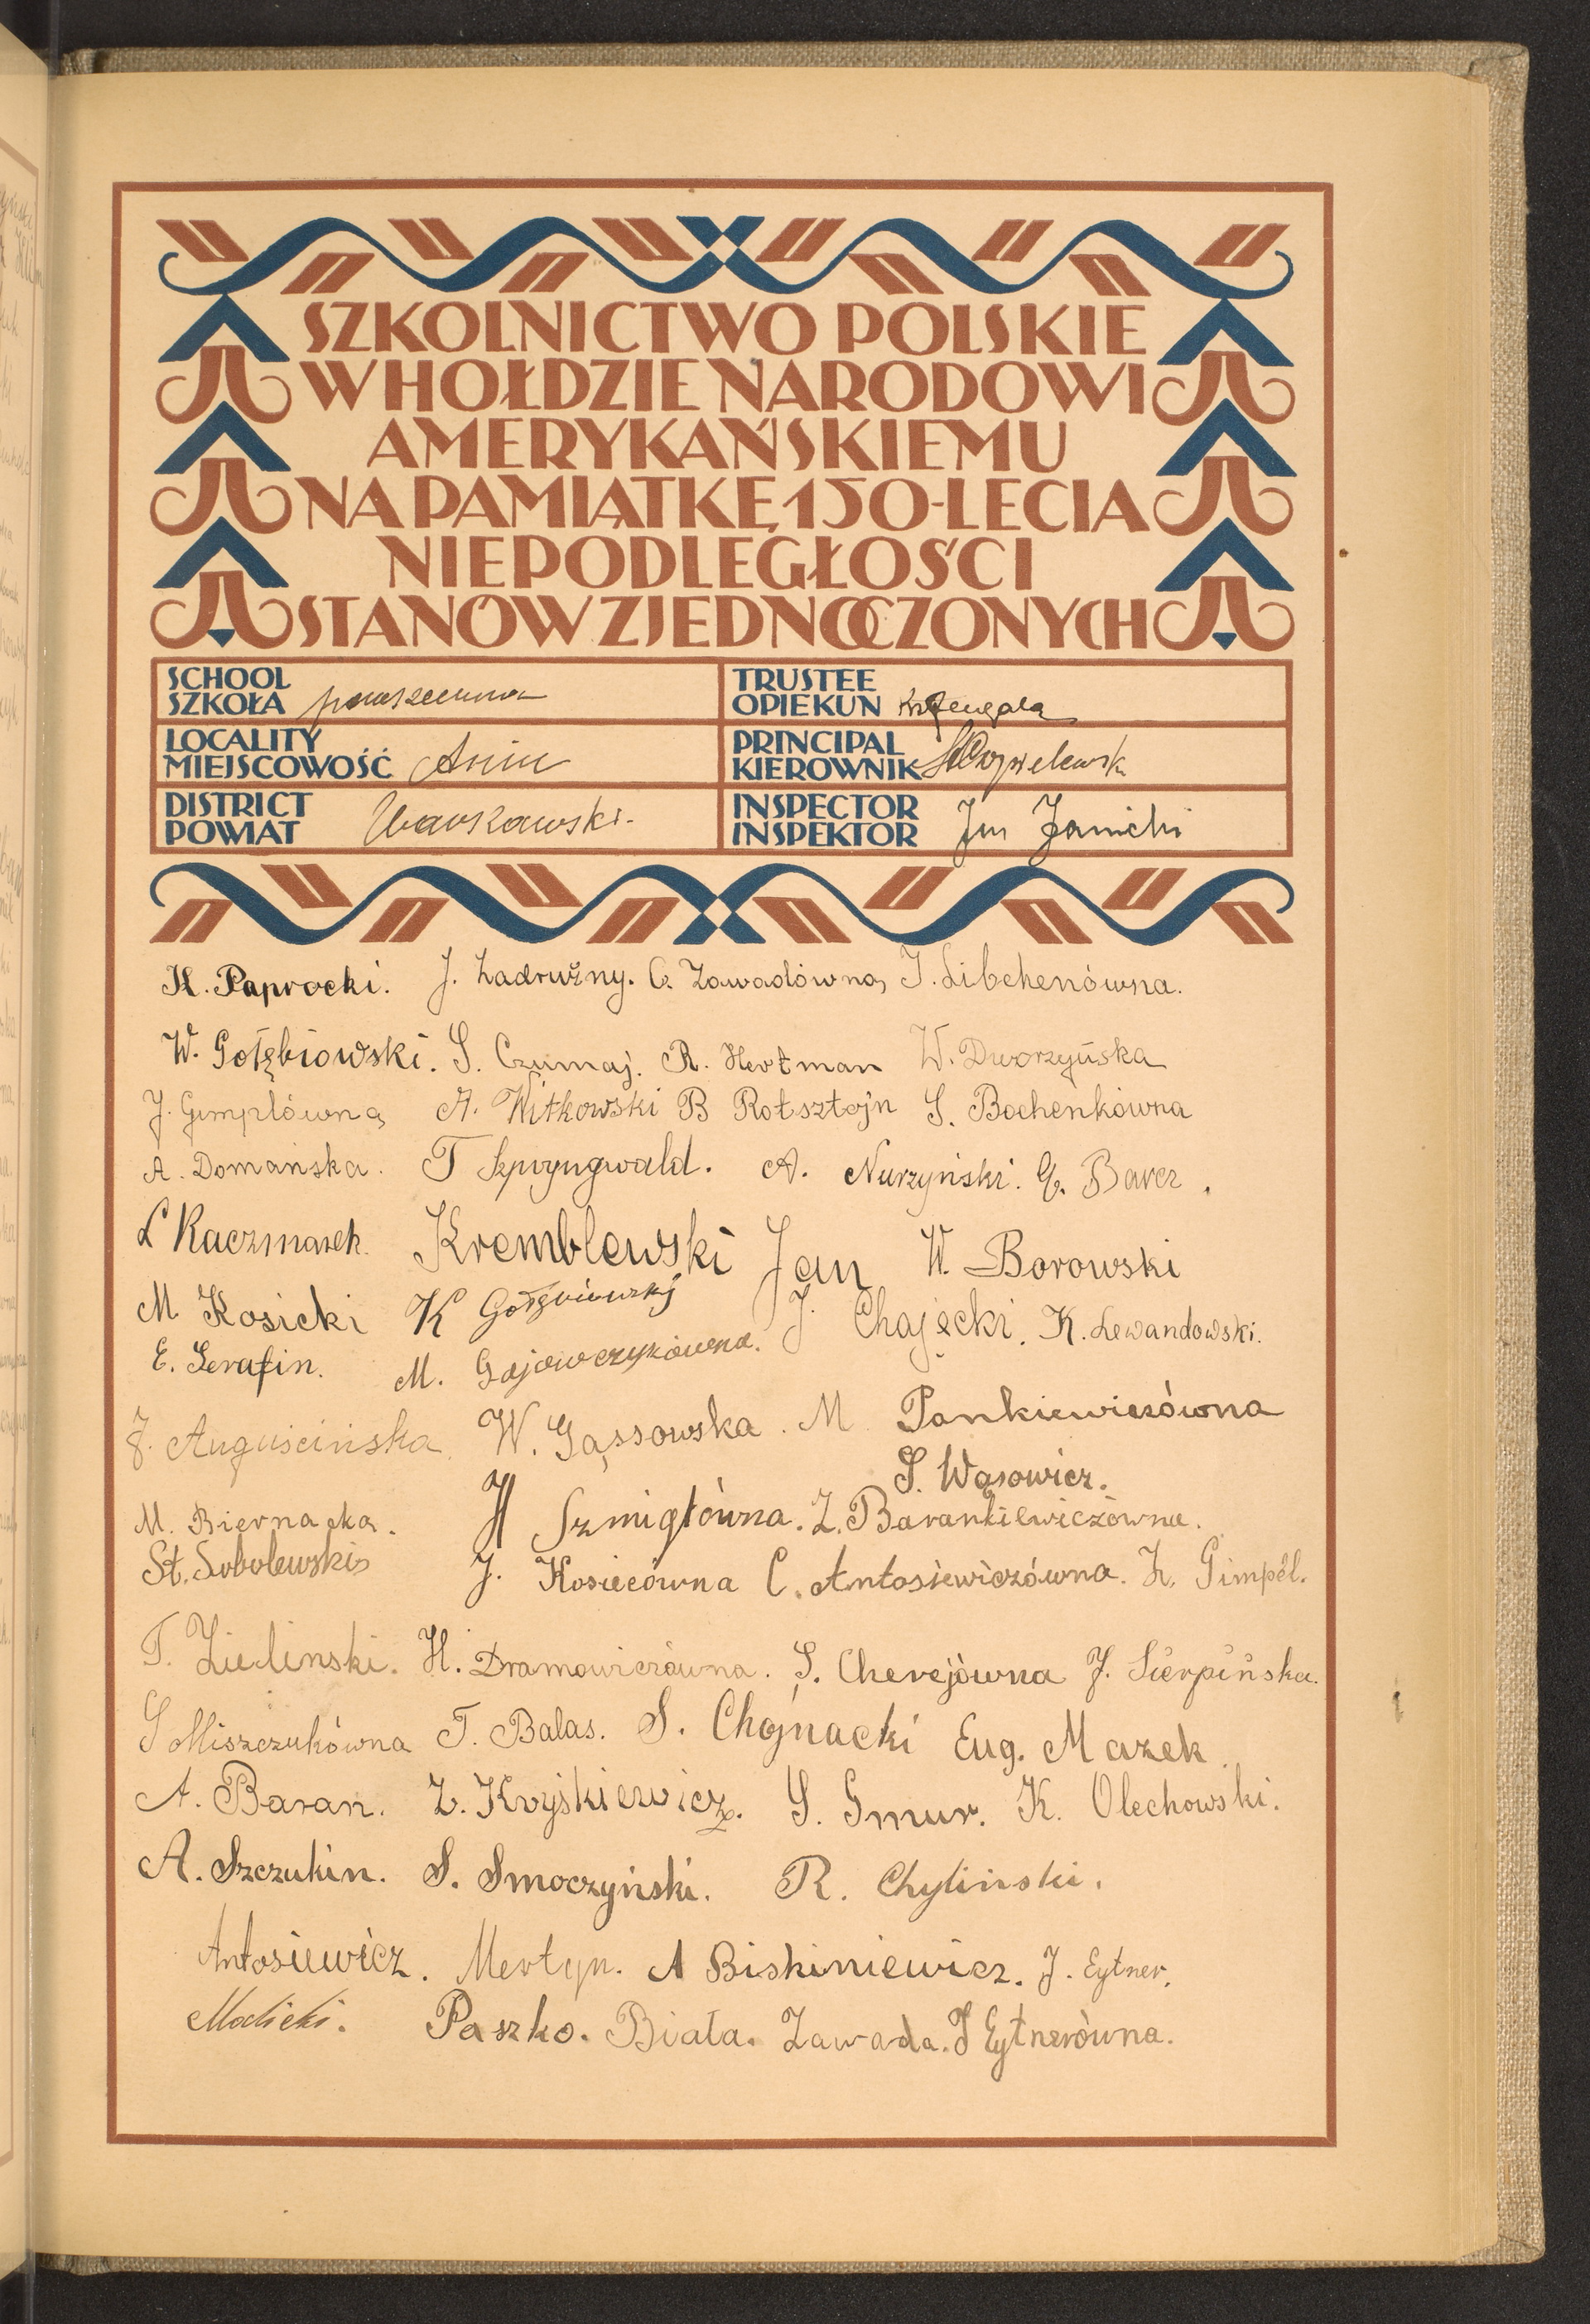 SZKOLNICTWO POLSKIE
W HOŁDZIE NARODOWI
AMERYKAŃSKIEMU
NA PAMIĄTKĘ 150-LECIA
NIEPODLEGŁOŚCI
STANÓW ZJEDNOCZONYCH
SCHOOL
SZKOŁA powszechna
TRUSTEE
OPIEKUN
LOCALITY
MIEJSCOWOŚĆ Anin
PRINCIPAL
KIEROWNIK
DISTRICT
POWIAT Warszawski.
INSPECTOR
INSPEKTOR Jan Janicki
K. Paprocki. J. Zadrużny. C. Zawadówna, J. Libchenówna.
W. Gołębiowski. S. Czumaj. R. Hertman W. Dworzyńska
J. Gimplówna, A. Witkowski B Rotsztejn S. Bochenkówna
A. Domańska. T Szpryngwald. A. Nurzyński. G. Barcz.
L Kaczmarek. Kremblewski Jan W. Borowski
M. Kosicki K Gołębiowski J. Chajęcki. K. Lewandowski.
E. Serafin. M. Gajowczykówna.
J. Auguścińska. W. Gąssowska. M Pankiewiczówna
S. Wąsowicz.
M. Biernacka. H Szmigłówna. Z. Barankiewiczówna.
St. Sobolewski J. Kosiecówna C. Antosiewiczówna. Z. Gimpel.
T. Zielinski. H. Dramowiczówna. S. Cherejówna J. Sierpińska.
S Miszczukówna T. Balas. S. Chojnacki Eug. Mazek.
A. Baran. Z. Kryśkiewicz. S. Gmur. K. Olechowski.
A. Szczukin. S. Smoczyński. R. Chyliński.
Antosiewicz. Mertyn. A Biskiniewicz. J. Eytner.
Malicki. Paszko. Biała. Zawada. J Eytnerówna.